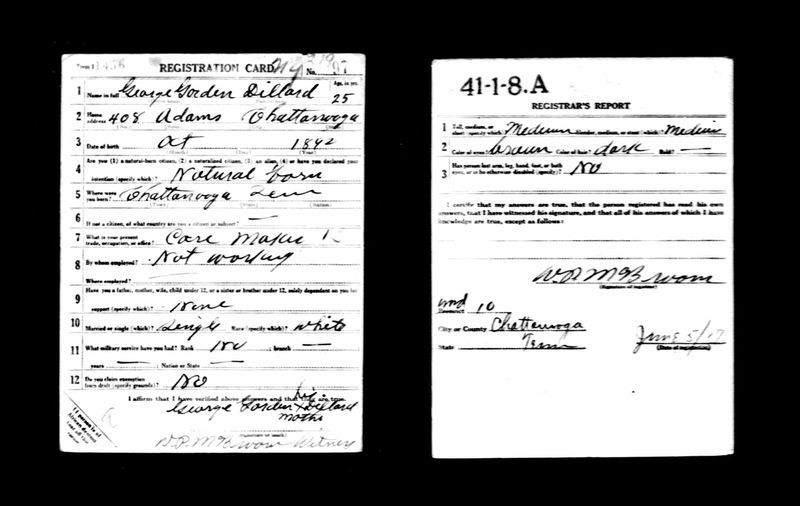 Form 1 1456 REGISTRATION CARD No. 97
1 Name in full George Gorden Dillard Age, in yrs. 25
2 Home address 408 Adams Chattanooga
3 Date of birth Oct 1892
(Month) (Day) (Year)
Are you (1) a natural-born citizen, (2) a naturalized citizen, (3) an alien, (4) or have you declared your
4 intention (specify which)? Natural born
5 Where were you born? Chattanooga Tenn
(Town) (State) (Nation)
6 If not a citizen, of what country are you a citizen or subject? —
7 What is your present trade, occupation, or office? Core Maker
8 By whom employed? Not working
Where employed?
Have you a father, mother, wife, child under 12, or a sister or brother under 12, solely dependent on you for
9 support (specify which)? None
10 Married or single (which)? Single Race (specify which)? White
11 What military service have you had? Rank No ; branch —
years — ; Nation or State —
12 Do you claim exemption from draft (specify grounds)? No
I affirm that I have verified above answers and that they are true.
his
George Gorden X Dillard
mark
W.P. McBroom Witness
(Signature or mark)
If person is of African descent, tear off this corner
41-1-8.A
REGISTRAR'S REPORT
1 Tall, medium, or short (specify which)? Medium Slender, medium, or stout (which)? Medium
2 Color of eyes? brown Color of hair? dark Bald? —
3 Has person lost arm, leg, hand, foot, or both eyes, or is he otherwise disabled (specify)? No
I certify that my answers are true, that the person registered has read his own
answers, that I have witnessed his signature, and that all of his answers of which I have
knowledge are true, except as follows:
W.P. McBroom
(Signature of registrar)
Precinct 10
City or County Chattanooga
State Tenn
June 5/17
(Date of registration)